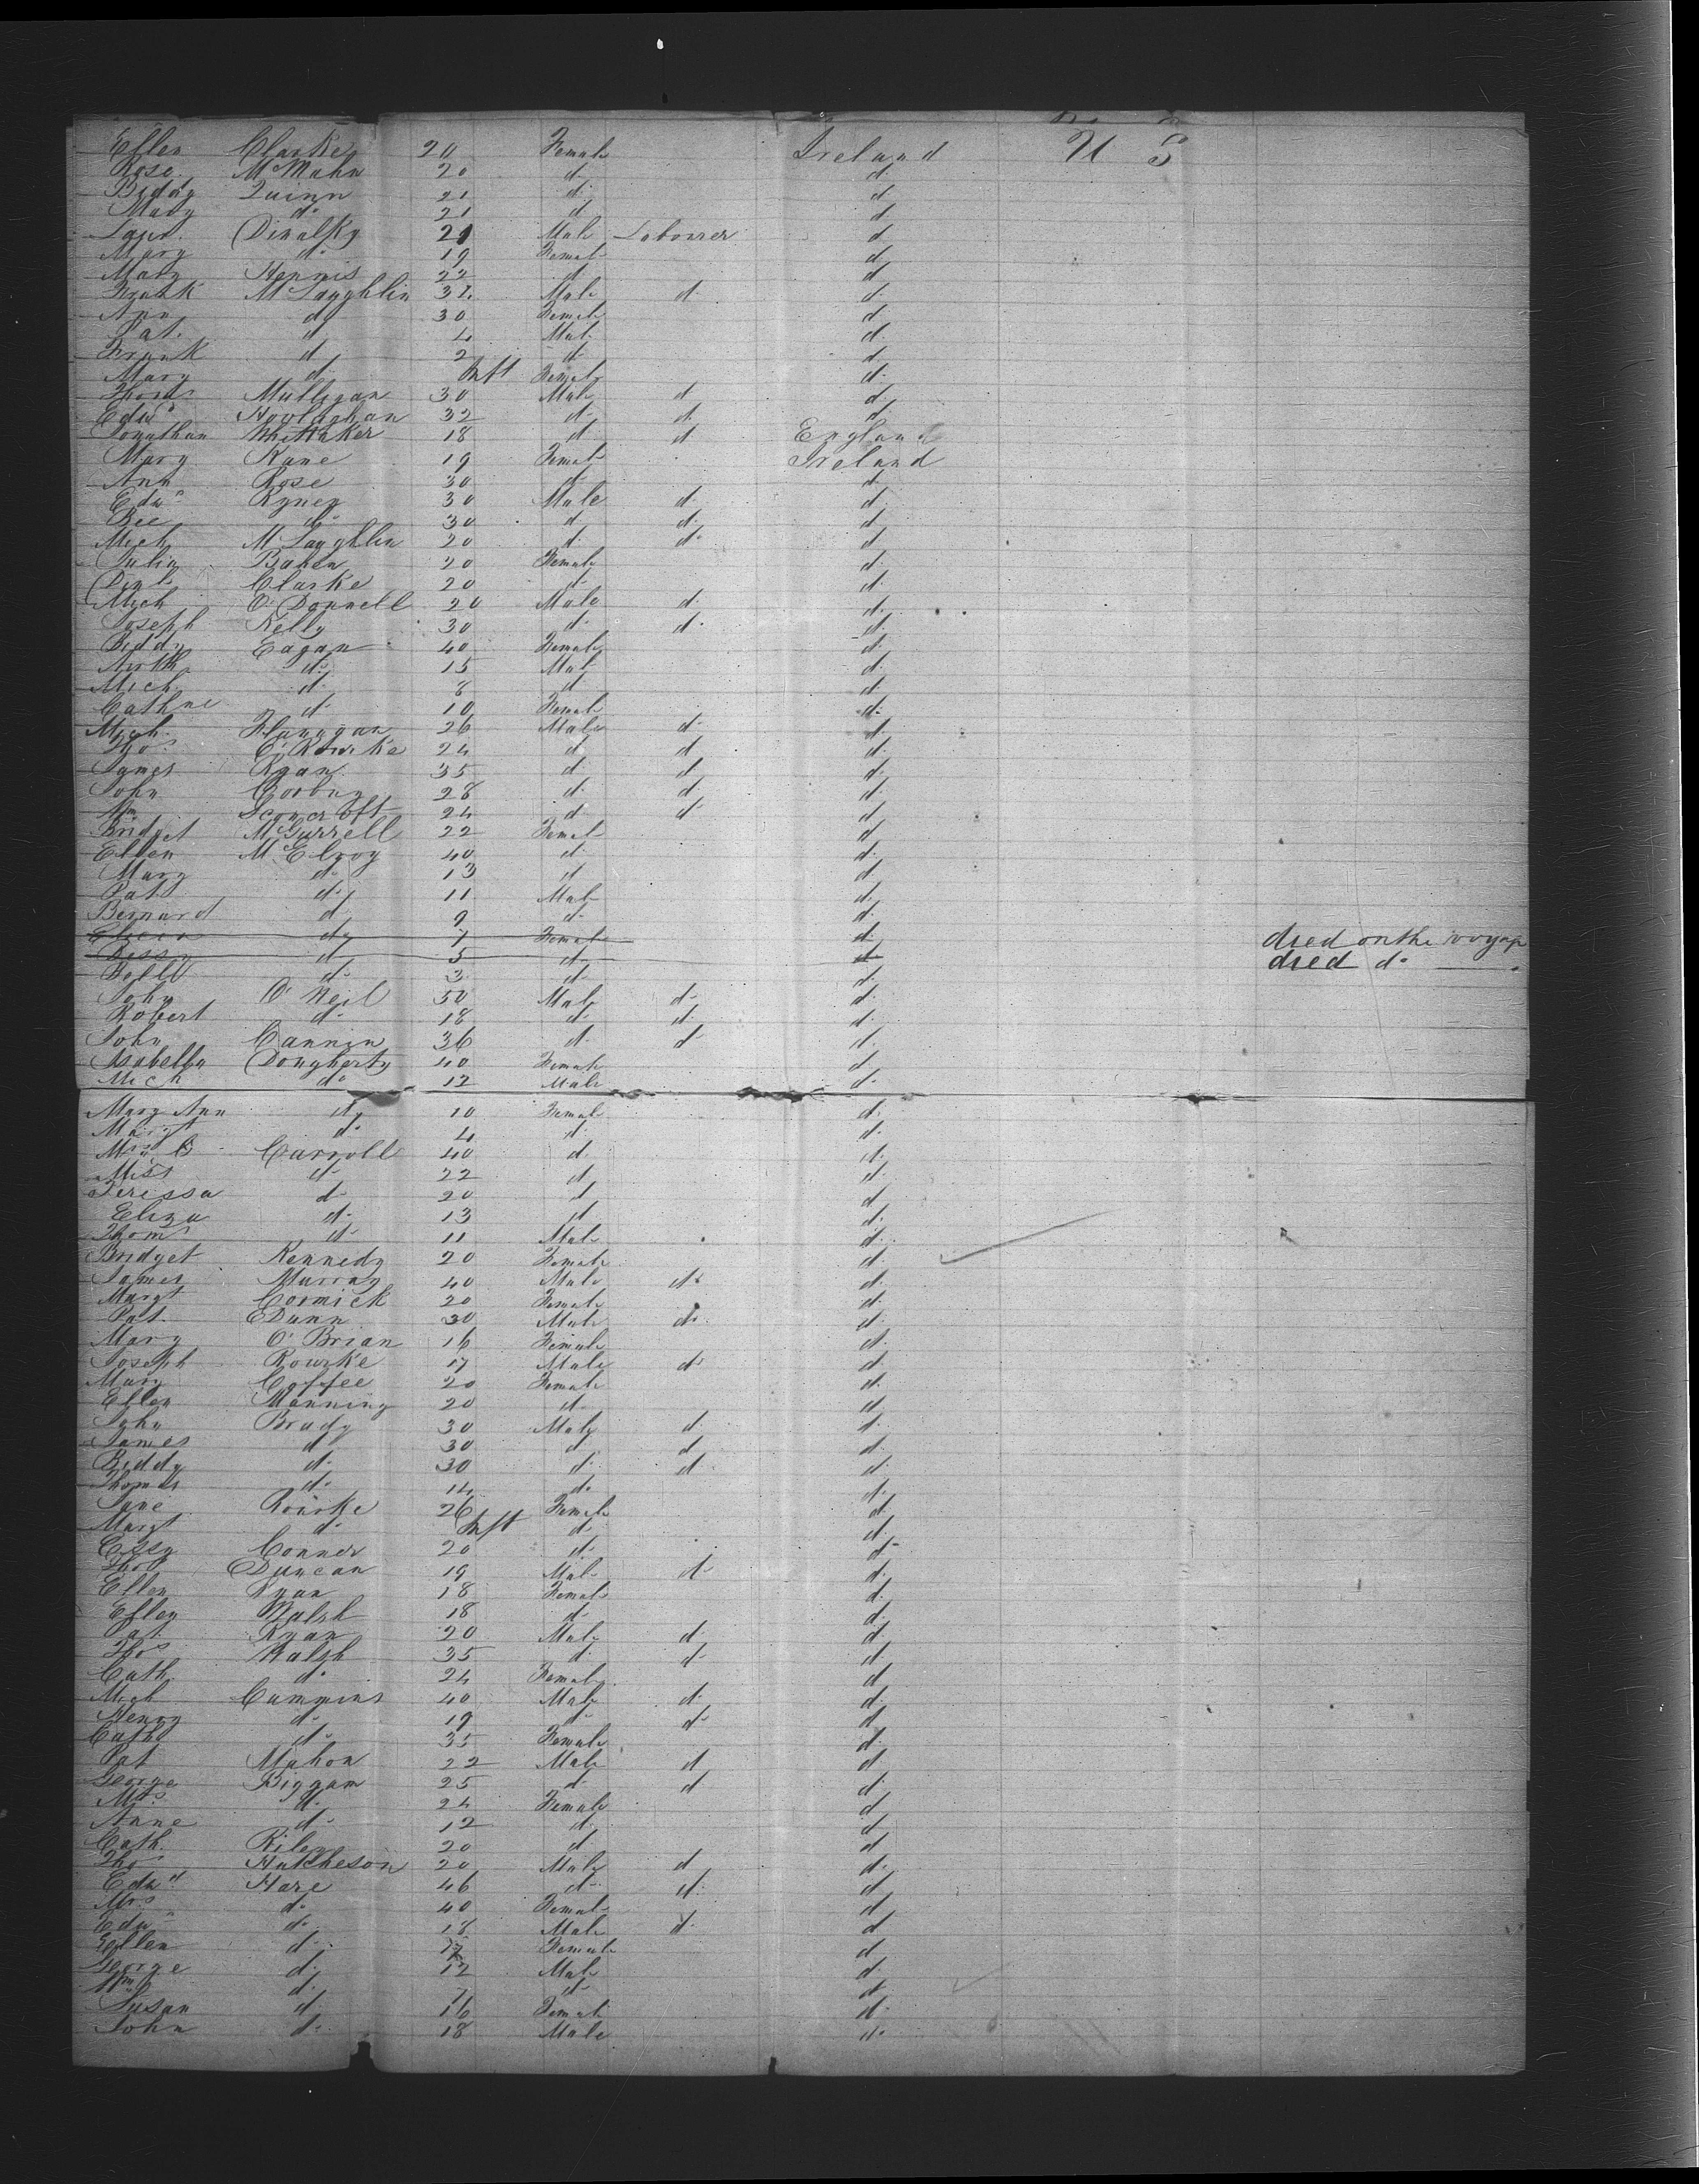 Ellen Clarke 20 Female Ireland U S
Rose McMahn 20 d d
Biddy Quinn 21 d d
Mary do 21 d d
Dinalky 21 Male Labourer d
Mary do 19 Female d
Mary Hennis 22 d d
Frank McLaughlin 32 Male d d
Ann do 30 Female d
Pat. d 4 Male d
Frank d 2 d d
Mary d Inft Female d
Thoms Mulligan 30 Male d d
Edwd Hoolaghan 32 d d d
Jonathan Whittaker 18 d d England
Mary Kane 19 Female Ireland
Ann Rose 30 d d
Edwd Ryney 30 Male d d
do 30 d d d
Mich McLaughlin 20 d do d
Julia 20 Female d
Clarke 20 d d
Mich O'Donnell 20 Male d d
Joseph Kelly 30 d d d
Biddy Eagan 40 Female d
do 15 Male d
Mich d 8 d d
Cathne d 10 Female d
Mich. Flanagan 26 Male d d
Thos O'Rourke 24 d d d
James Ryan 35 d d d
John 28 d d d
Wm 24 d d d
Bridget McGurrell 22 Female d
Ellen McElroy 40 d d
Mary do 13 d d
Pat. do 11 Male d
Bernard d 9 d d
do 7 Female d died on the voyage
d 5 d d died do
Bell do 3 d d
John O'Neil 50 Male d d
Robert d 18 d d d
John Cannin 36 d d d
Isabella Dougherty 40 Female d
Mich do 12 Male d
Mary Ann do 10 Female d
Margt do 4 d d
Mrs B Carroll 40 d d
Miss d 22 d d
Terissa d 20 d d
Eliza d 13 d d
Thoms d 11 Male d
Bridget Kennedy 20 Female d
James Murray 40 Male do d
Margt Cormick 20 Female d
Pat. Dunn 30 Male do d
Mary O'Brian 16 Female d
Joseph Rourke 17 Male do d
Mary Coffee 20 Female d
Ellen Manning 20 d d
John Brady 30 Male d d
James d 30 d d d
Biddy d 30 d d d
Thomas d 14 do d
Jane Rourke 26 Female d
Margt do Inft d d
Cissy Conner 20 d d
Thos Duncan 19 Male d d
Ellen Ryan 18 Female d
Ellen Walsh 18 d d
Pat Ryan 20 Male d d
Thos Walsh 35 d d d
Cath do 24 Female d
Mich Cummins 40 Male d d
Henry d 19 d d d
Cath d 35 Female d
Pat Mahon 22 Male d d
George Biggam 25 d d d
Mrs d 24 Female d
Anne d 12 d d
Cath. Riley 20 d d
Thos Hutcheson 20 Male d d
Edwd Hare 46 d d d
Mrs do 40 Female d
Edwd do 18 Male d d
Ellen d Female d
George d 12 Male d
Wm d 7 d d
Susan d 16 Female d
John d 18 Male d